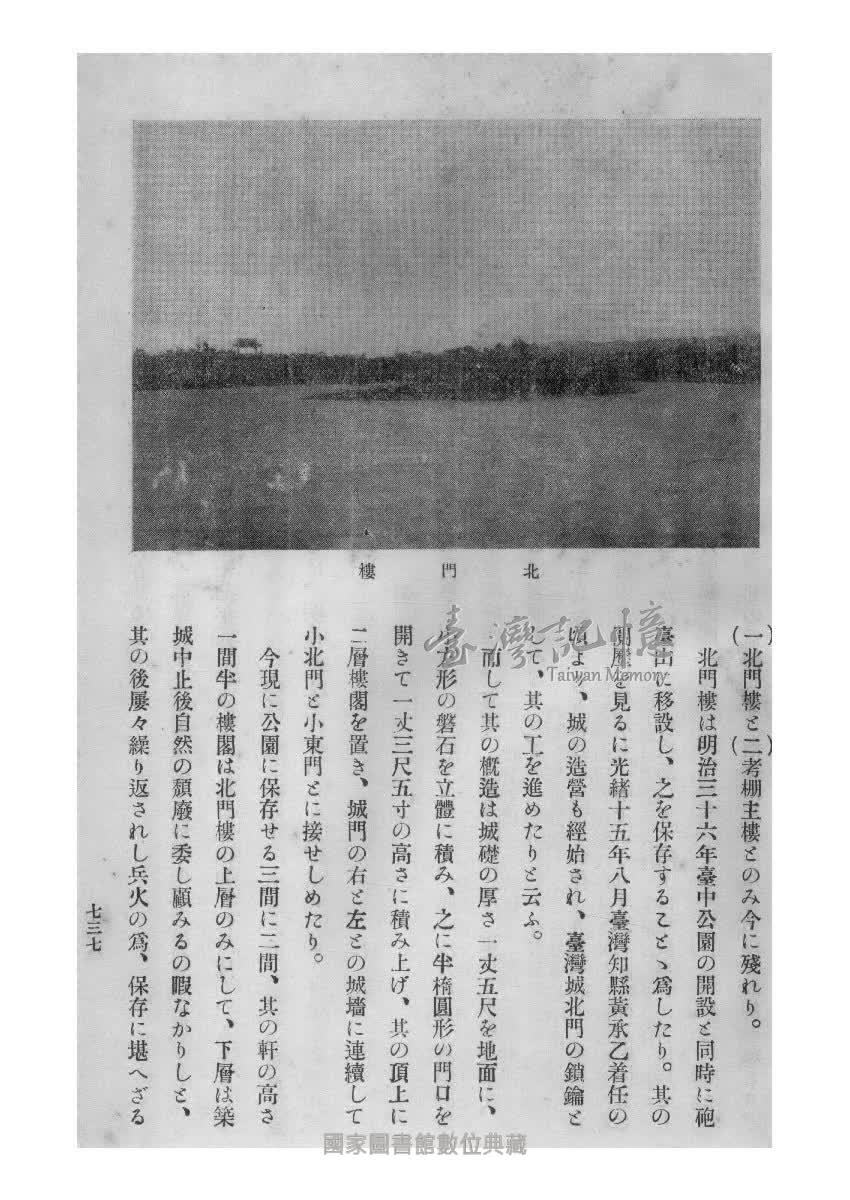 北門樓
(一北門樓と(二考棚主樓とのみ今に殘れり。
北門樓は明治三十六年臺中公園の開設と同時に砲
臺山に移設し、之を保存することゝ爲したり。其の
閲歷を見るに光緒十五年八月臺灣知縣黃承乙着任の
頃より、城の造營も經始され、臺灣城北門の鎖鑰と
して、其の工を進めたりと云ふ。
而して其の槪造は城礎の厚さ一丈五尺を地面に、
方形の磐石を立體に積み、之に半楕圓形の門口を
開きて一丈三尺五寸の高さに積み上げ、其の頂上に
二層樓閣を置き、城門の右と左との城墻に連續して
小北門と小東門とに接せしめたり。
今現に公園に保存せる三間に二間、其の軒の高さ
一間半の樓閣は北門樓の上層のみにして、下層は築
城中止後自然の頽廢に委し顧みるの暇なかりしと、
其の後屢々繰り返されし兵火の爲、保存に堪へざる
七三七
臺灣記憶
Taiwan Memory
國家圖書館數位典藏